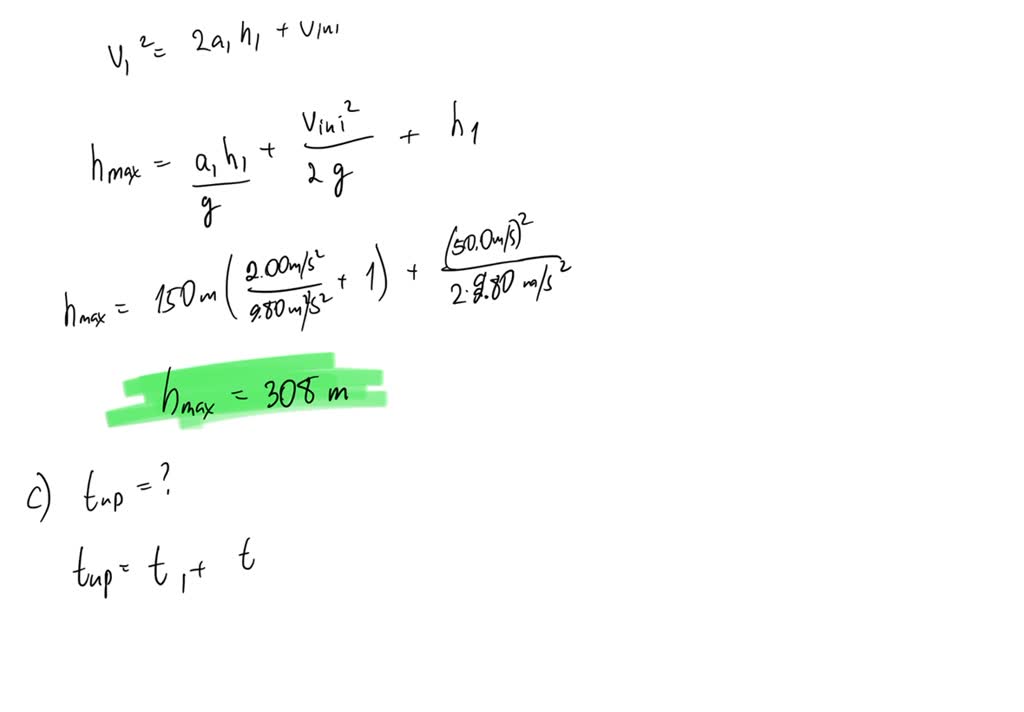 v₁² = 2a₁h₁ + vini
hmax = a₁h₁/g + vini²/2g + h₁
hmax = 150m(2.00m/s²/9.80m/s² + 1) + (50.0m/s)²/2·9.80 m/s²
hmax = 308 m
c) tup = ?
tup = t₁ + t